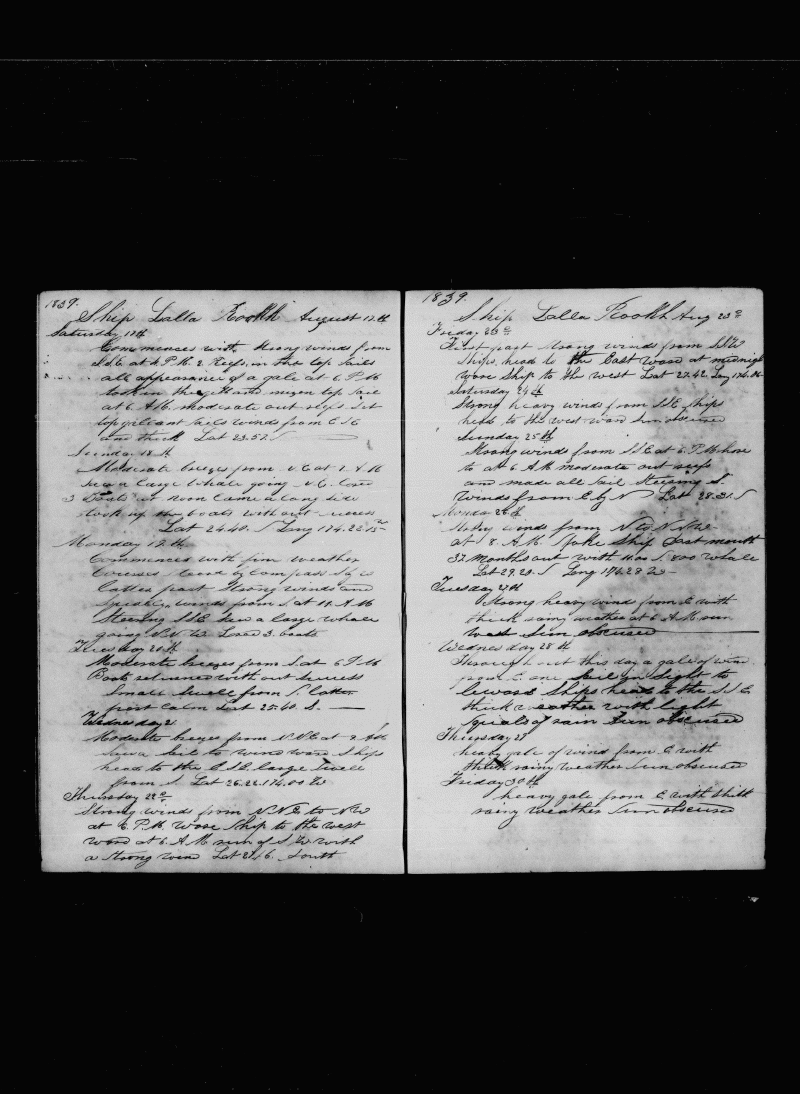 1839.
Ship Lalla Rookh August 17th
Saturday 17th
Commences with strong winds from
S.d.E at 4 P.M. 2 Reefs in the top sails
all appearance of a gale at 6 P.M
took in the and mizen top sail
at 6 A.M. moderate out reefs set
top gallant sails winds from E S E
and thick Lat 23.52 S
Sunday 18th
Moderate breezes from N.E at 2 A M
saw a large Whale going N.E. lowerd
3 Boats it soon came along side
took up the boats without success
Lat 24.40. S Long 174.22 15
Monday 19th
Commences with fine weather
Courses by compass S by W
Latter part strong winds and
winds from S at 11. A M
Steering SSE saw a large whale
going N.N.W. Lowd 3. boats
Tuesday 20th
Moderate breezes from S. at 6 P.M
Boats returned with out success
Small swell from S. latter
part calm Lat 25.40 S.
Wednesday 21
Moderate breezes from N.N.E at 2 A M
saw a Sail to wind ward Ships
head to the E.S.E. large swell
from S. Lat 26.22. 174.00 W
Thursday 22d
Strong winds from N.N.E. to N.W
at 6. P.M. Wore Ship to the west
ward at 6. A M S.W with
a strong wind Lat 27.16. South
1839.
Ship Lalla Rookh Aug 23d
Friday 23d
First part strong winds from SSW
Ships head to the East ward at midnigh
wore Ship to the west Lat 27.42 Long 174.06
Saturday 24th
Strong heavy winds from S.S.E. Ships
head to the west ward Sun obscured
Sunday 25th
Strong winds from S.S.E at 6. P.M. hove
to at 6 A M moderate out reefs
and made all sail steering S.
winds from E. by N Lat 28.31 S
Monday 26th
winds from N to N.N.W.
at 8. A.M. spoke Ship East mouth
37. months out with 1100 S. 800 whale
Lat 29.20. S Long 176.28 W
Tuesday 27th
Strong heavy wind from E. with
thick rainy weather at 6 A.M.
Sun obscured
Wednesday 28th
Through out this day a gale of wind
from E. one Sail in Sight to
leward Ships head to the N.E.
thick weather with light
squals of rain Sun obscured
Thursday 29
heavy gale of wind from E. with
thick rainy weather Sun obscured
Friday 30th
heavy gale from E. with thick
rainy weather Sun obscured